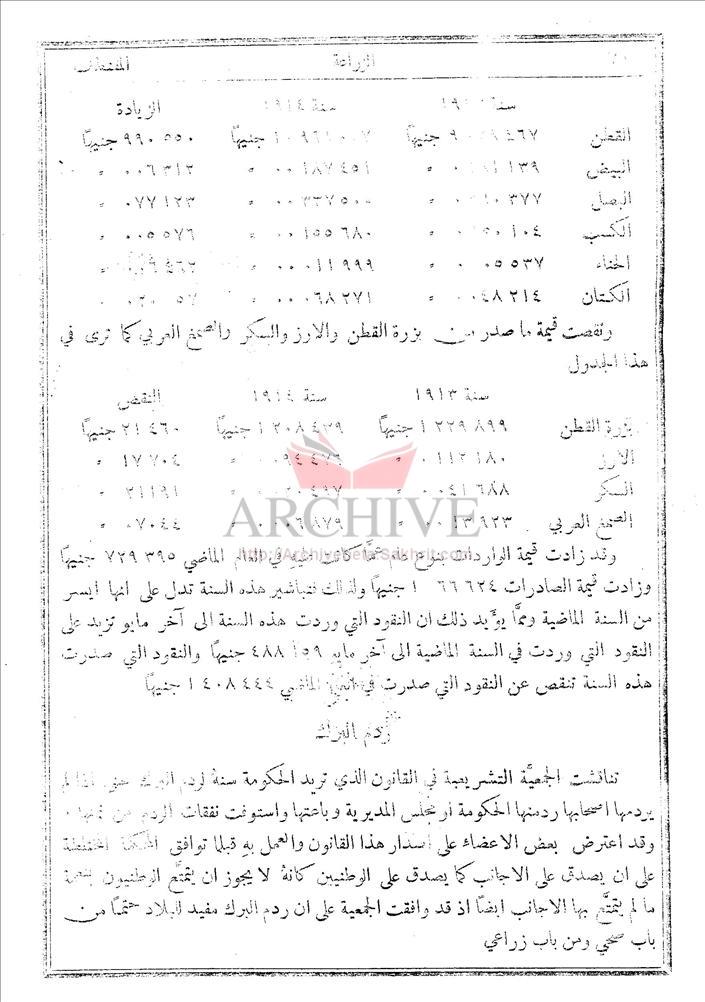 الزراعة المقتطف
سنة سنة ١٩١٤ الزيادة
القطن ٤٦٧ جنيهًا جنيهًا ٩٩٠ ٥٥٠ جنيهًا
البيض ١٣٩ ٠٠١٨٧ ٤٥١ " ٠٠٦ ٣١٢ "
البصل ٣٧٧ " ٠٠٣٣٧ ٥٠٠ " ٠٧٧ ١٢٣ "
الكسب ١٠٤ " ٠٠١٥٥ ٦٨٠ " ٠٠٥ ٥٧٦ "
الحناء ٠٥ ٥٣٧ " ٠٠٠١١ ٩٩٩ " ٤٦٢ "
الكتان ٠٠٤٨ ٢١٤ " ٠٠٠٦٨ ٢٧١ " ٠٢٠ ٠٥٧ "
ونقصت قيمة ما صدر من بزرة القطن والارز والسكر والصمغ العربي كما ترى في
هذا الجدول
سنة ١٩١٣ سنة ١٩١٤ النقص
بزرة القطن ١ ٢٢٩ ٨٩٩ جنيهًا ١ ٢٠٨ ٤٣٩ جنيهًا ٢١ ٤٦٠ جنيهًا
الارز ٠١١٢ ١٨٠ " ٩٤ ٤٧٦ " ١٧ ٧٠٤ "
السكر ٠٠٤١ ٦٨٨ ٢٠ ٤٩٧ " ٢١ ١٩١ "
الصمغ العربي ٠٠١٣ ٩٢٣ " ٠٠٠٦ ٨٧٩ " ٠٧٠٤٤ "
ARCHIVE
وقد زادت قيمة الواردات بنوع عام عمَّا كانت عليه في العام الماضي ٧٢٩ ٣٩٥ جنيهًا
وزادت قيمة الصادرات ١ ٠٦٦ ٦٢٤ جنيهًا ولذلك فتباشير هذه السنة تدل على انها ايسر
من السنة الماضية وممَّا يؤيد ذلك ان النقود التي وردت هذه السنة الى آخر مايو تزيد على
النقود التي وردت في السنة الماضية الى آخر مايو ٤٨٨ ١٥٩ جنيهًا والنقود التي صدرت
هذه السنة تنقص عن النقود التي صدرت في الماضي ١ ٤٠٨ ٤٤٤ جنيهًا
ردم البرك
تناقشت الجمعيَّة التشريعية في القانون الذي تريد الحكومة سنهُ لردم البرك حتى اذا لم
يردمها اصحابها ردمتها الحكومة او مجلس المديرية وباعتها واستوفت نفقات الردم من ثمنها .
وقد اعترض بعض الاعضاء على اصدار هذا القانون والعمل بهِ قبلما توافق المحكمة المختلطة
على ان يصدق على الاجانب كما يصدق على الوطنيين كانهُ لا يجوز ان يتمتَّع الوطنيون بنعمة
ما لم يتمتَّع بها الاجانب ايضًا اذ قد وافقت الجمعية على ان ردم البرك مفيد للبلاد حتمًا من
باب صحي ومن باب زراعي